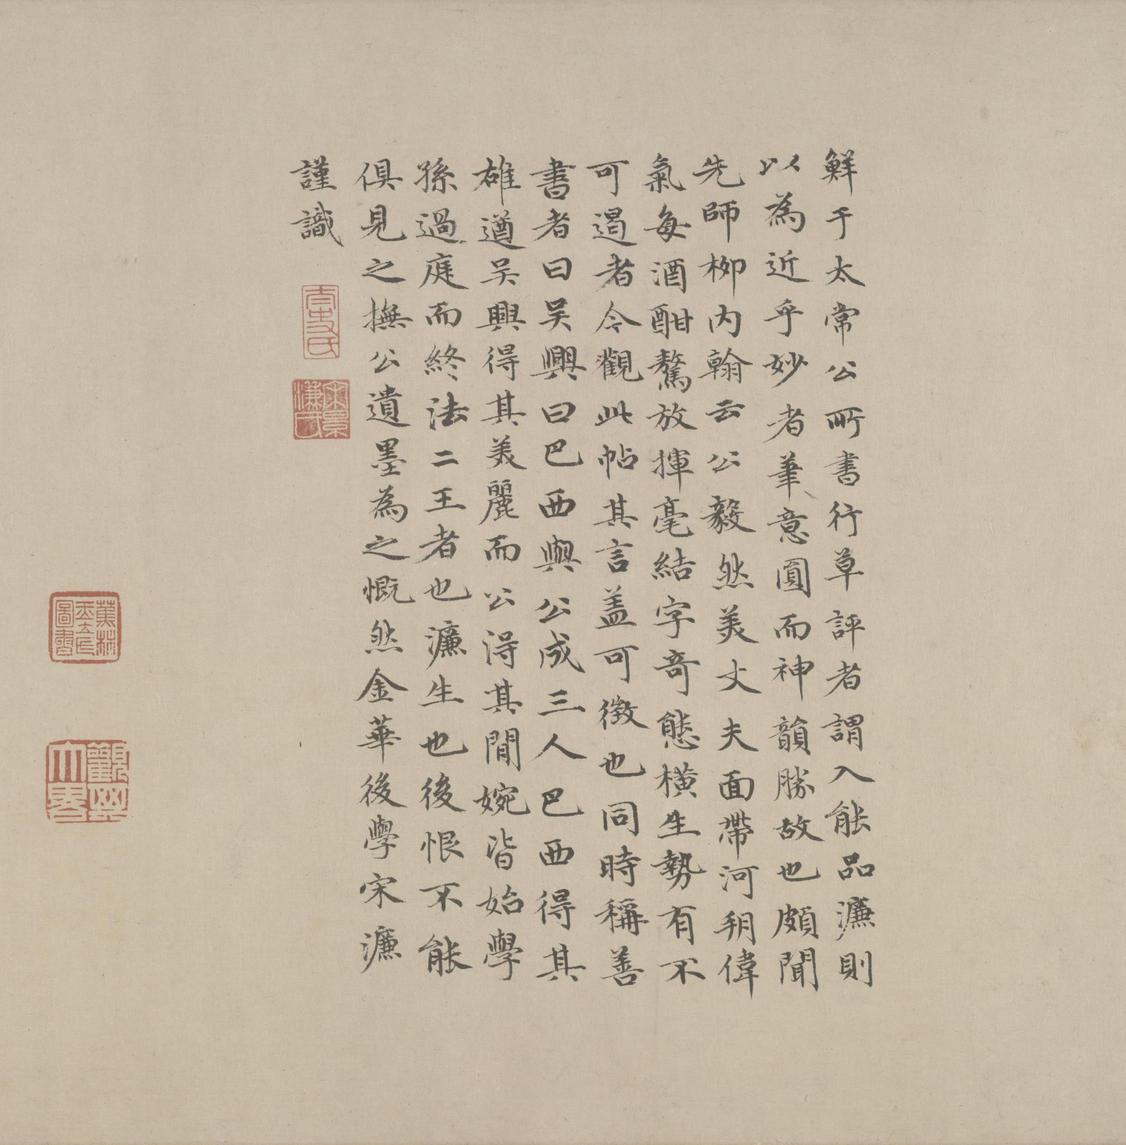 鮮于太常公所書行草評者謂入能品濂則
以為近乎妙者筆意圓而神韻勝故也頗聞
先師柳内翰云公毅然美丈夫面帶河朔偉
氣每酒酣驁放揮毫結字奇態橫生勢有不
可遏者令觀此帖其言盖可徵也同時稱善
書者曰吴興曰巴西與公成三人巴西得其
雄遒吴興得其美麗而公得其閒婉皆始學
孫過庭而終法二王者也濂生也後恨不能
俱見之撫公遺墨為之慨然金華後學宋濂
謹識
太史氏
宋景濂氏
蕉林玉立氏圖書
觀其大略